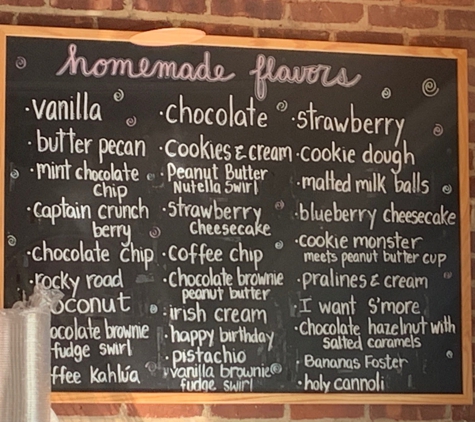 homemade flavors
·vanilla
·butter pecan
·mint chocolate
chip
·captain crunch
berry
·chocolate chip
·rocky road
oconut
ocolate brownie
fudge swirl
ffee kahlúa
·chocolate
·cookies & cream
·Peanut Butter
Nutella Swirl
·strawberry
cheesecake
·coffee chip
·chocolate brownie
peanut butter
·irish cream
·happy birthday
·pistachio
·vanilla brownie
fudge swirl
·strawberry
·cookie dough
·malted milk balls
·blueberry cheesecake
·cookie monster
meets peanut butter cup
·pralines & cream
·I want S'more
·chocolate hazelnut with
salted caramels
·Bananas Foster
·holy cannoli